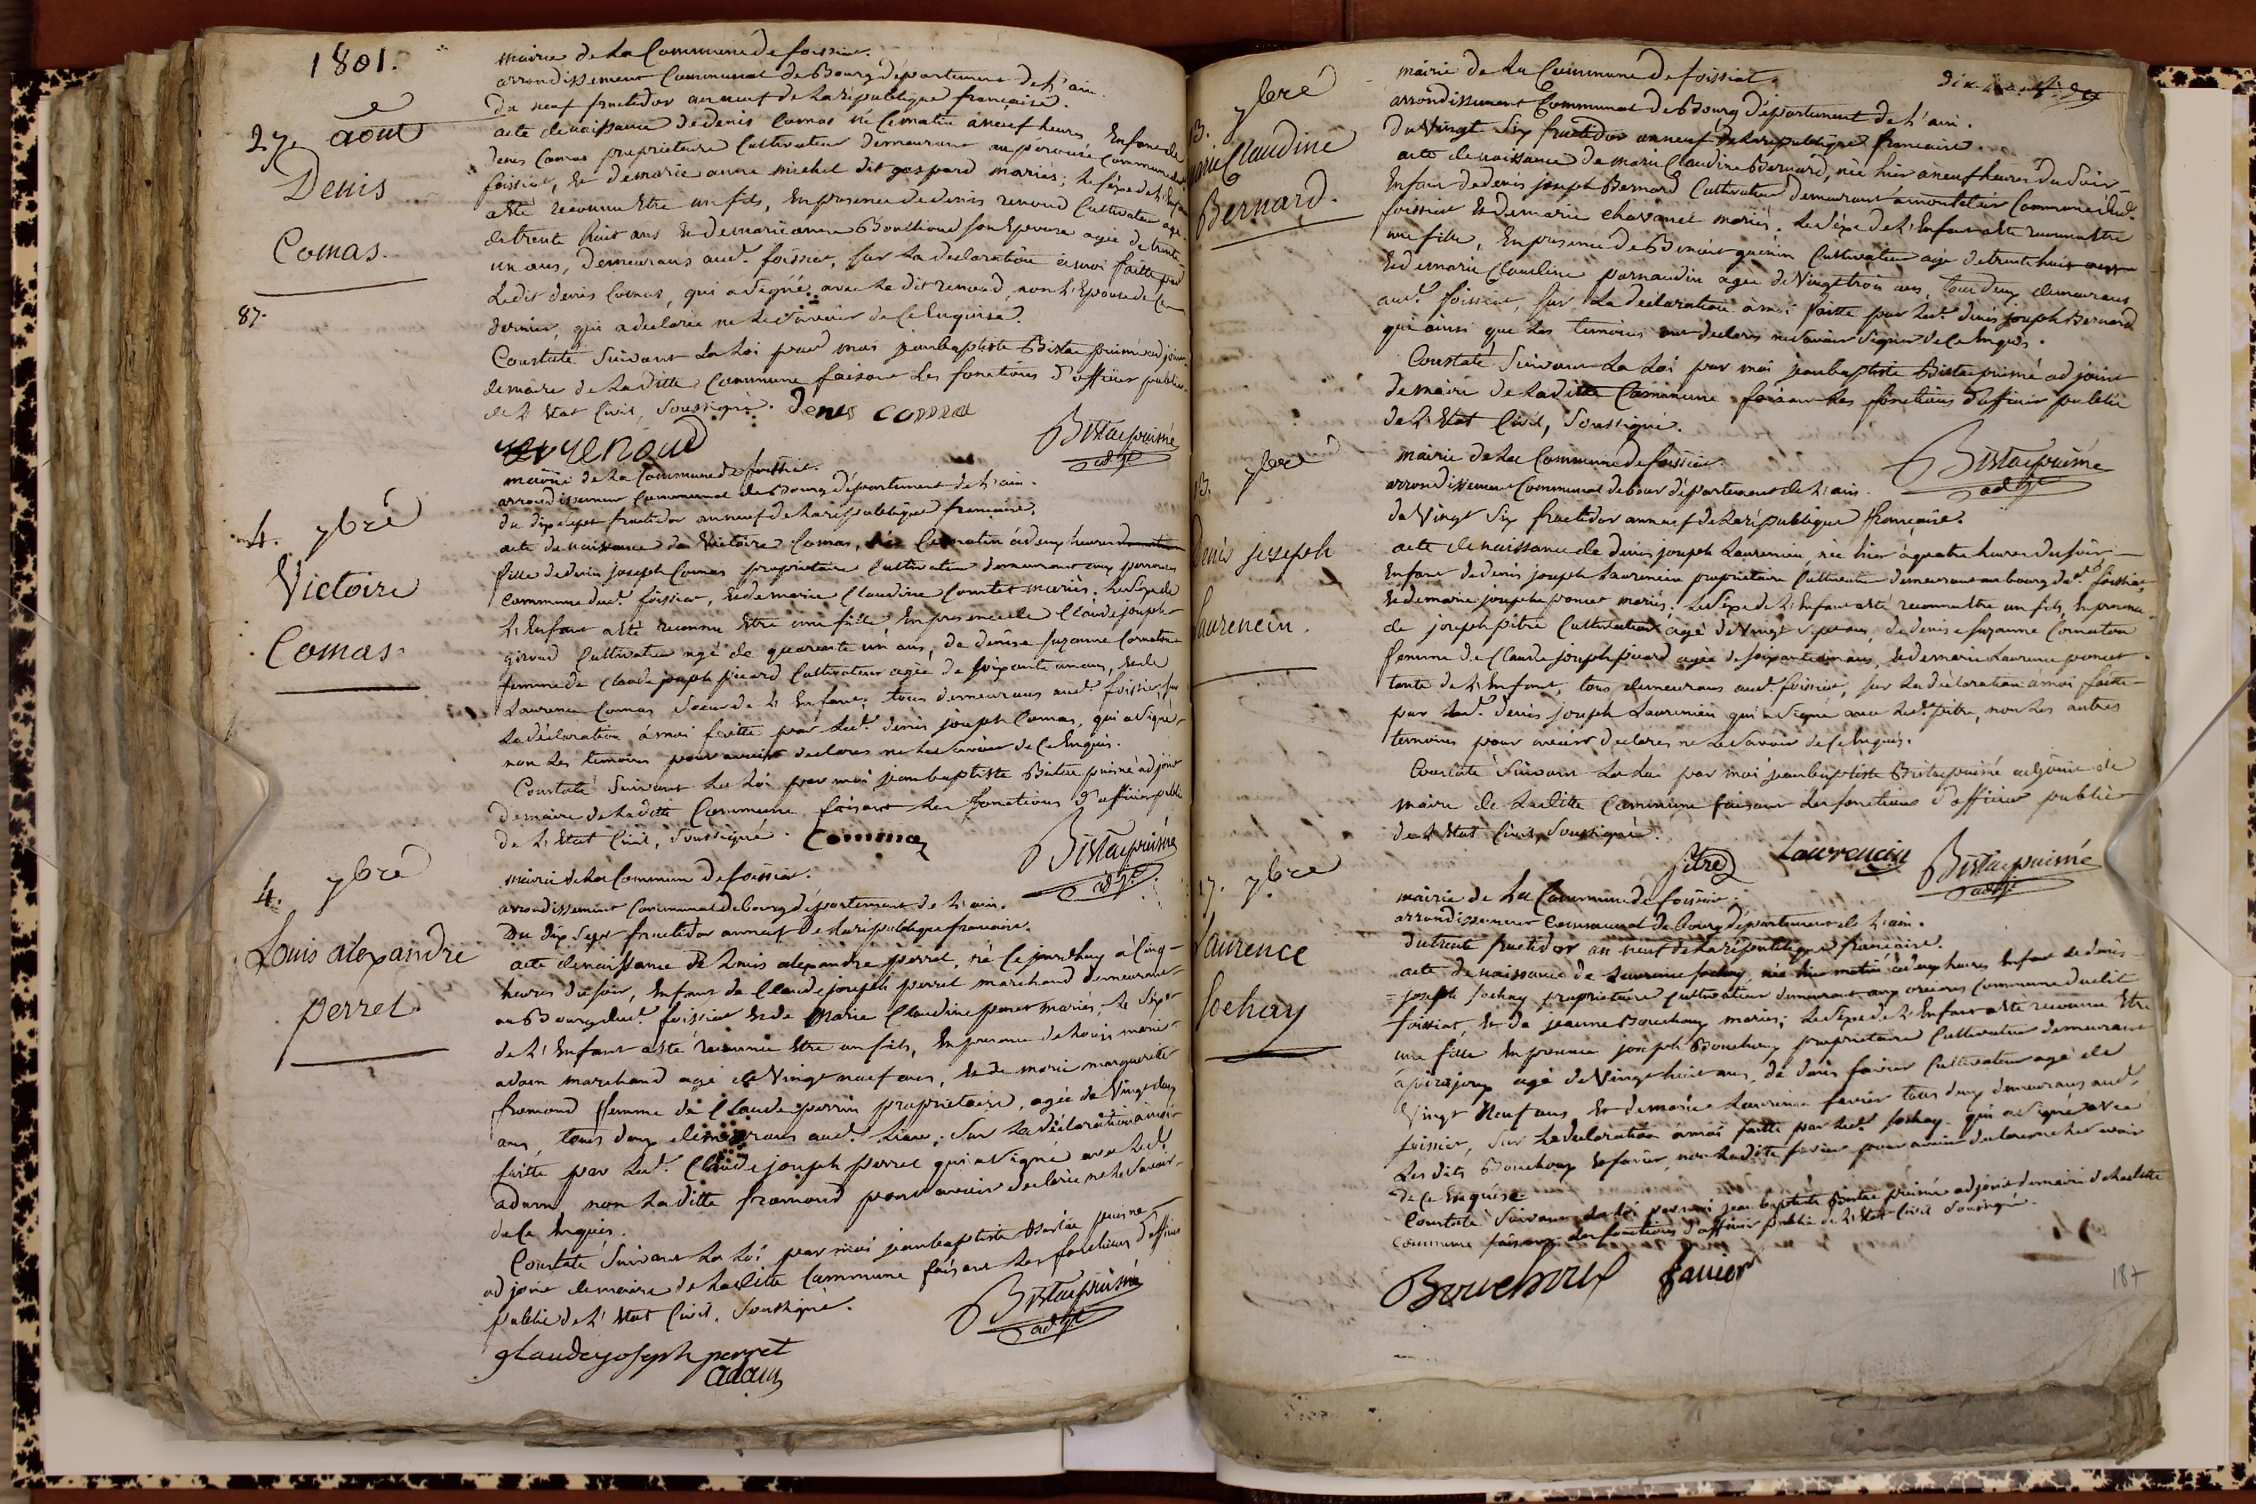 1801.
27. août
Denis
Comas.
87.
mairie de la Commune de foissiat.
arrondissement Communal de Bourg département de l'ain.
du neuf fructidor an neuf de la république française.
acte de naissance de denis Comas né ce matin à neuf heures Enfant de
denis Comas propriétaire Cultivateur demeurant
foissiat, et de marie anne michel dit gaspard mariés; le séxe de l'Enfant
a été reconnu être un fils, En presence de denis renoud Cultivateur agé
de trente huit ans et de marie anne Bouchoud son Epouse agée de trente
un ans, demeurans aud.t foissiat, sur la declaration à moi faitte par
Ledit denis Comas, qui a signé avec le dit renoud, non l'Epouse de ce
dernier, qui a déclarée ne le savoir de ce Enquise.
Constaté Suivant La Loi par moi jeanbaptiste Bistac puiné adjoint
de maire de la ditte Commune faisant Les fonctions d'officier public
de l'Etat Civil, Soussigné. denis comas
renoud
Bistac puiné
adjt
4. 7bre
Victoire
Comas.
mairie de la Commune de foissiat.
arrondissement Communal de Bourg département de l'ain.
du dix sept fructidor an neuf de la république française.
acte de naissance de Victoire Comas, née Ce matin à deux heures
fille de denis joseph Comas propriétaire Cultivateur demeurant aux
Commune dud.t foissiat, et de marie Claudine Comtet mariés. Le séxe de
L'Enfant a été reconnu être une fille En presence de Claude joseph
giroud Cultivateur agé de quarante un ans, de denise suzanne Cornaton
femme de Claude joseph picard Cultivateur agée de soixante un ans, et de
Laurence Comas Soeur de l'Enfant, tous demeurans aud.t foissiat, sur
la déclaration à moi faitte par led.t denis joseph Comas, qui a signé
non les temoins pour avoir declarés ne le savoir de ce Enquis.
Constaté Suivant La Loi par moi jeanbaptiste Bistac puiné adjoint
de maire de la ditte Commune faisant les fonctions d'officier public
de l'Etat Civil, Soussigné. Commas
Bistac puiné
adjt
4. 7bre
Louis alexandre
perret
mairie de la Commune de foissiat.
arrondissement Communal de bourg département de l'ain.
Du dix sept fructidor an neuf de la republique francaise.
acte de naissance de Louis alexandre perret, né Ce jourdhuy à Cinq
heures du soir, Enfant de Claude joseph perret marchand demeurant
au Bourg dud.t foissiat et de Marie Claudine poncet mariés, Le séxe
de l'Enfant a été reconnu être un fils, En presence de Louis marie
adam marchand agé de Vingt neuf ans, et de marie marguerite
fromond femme de Claude perrin propriétaire, agée de Vingt deux
ans, tous deux demeurans aud.t Lieu, sur la déclaration à moi
faitte par led.t Claude joseph perret qui a signé avec led.t
adam, non la ditte fromond pour avoir declarée ne le savoir
de ce Enquis.
Constaté Suivant La Loi par moi jeanbaptiste Bistac puiné
adjoint de maire de la ditte Commune faisant Les fonctions d'officier
public de l'Etat Civil, Soussigné.
Bistac puiné
adjt
Claude joseph perret
adam
13. 7bre
marie Claudine
Bernard.
mairie de La Commune de foissiat.
arrondissement Communal de Bourg département de l'ain.
Du Vingt Six fructidor an neuf de la république française.
acte de naissance de marie Claudine Bernard, née hier à neuf heures du soir
Enfant de denis joseph Bernard Cultivateur demeurant à Commune dud.t
foissiat et de marie chavanel mariés. Le séxe de l'Enfant a été reconnu être
une fille, En presence de Benoit guénin Cultivateur agé de trente huit ans
et de marie Claudine parnaudin agée de Vingt trois ans, tous deux demeurans
aud.t foissiat, sur La declaration à moi faitte par led.t denis joseph Bernard
qui ainsi que Les temoins ont declarés ne savoir signer de ce Enquis.
Constaté Suivant La Loi par moi jeanbaptiste Bistac puiné adjoint
de maire de la ditte Commune faisant Les fonctions d'officier public
de l'Etat Civil, Soussigné.
Bistac puiné
adjt
13. 7bre
Denis joseph
Laurencin.
mairie de La Commune de foissiat.
arrondissement Communal de bourg département de l'ain
du Vingt Six fructidor an neuf de la république française.
acte de naissance de denis joseph Laurencin, né hier à quatre heures du soir
Enfant de denis joseph Laurencin propriétaire Cultivateur demeurant au bourg dud.t foissiat,
et de marie josephe poncet mariés. Le séxe de l'Enfant a été reconnu être un fils, En presence
de joseph pitre Cultivateur agé de Vingt sept ans, de denise suzanne Cornaton
femme de Claude joseph picard agée de soixante un ans, et de marie Laurence poncet
tante de l'Enfant, tous demeurans aud.t foissiat, sur la déclaration à moi faitte
par led.t denis joseph Laurencin qui a signé avec led.t pitre, non Les autres
temoins pour avoir declarés ne le savoir de ce Enquis.
Constaté Suivant La Loi par moi jeanbaptiste Bistac puiné adjoint de
maire de la ditte Commune faisant Les fonctions d'officier public
de l'Etat Civil, Soussigné.
pitre Laurencin Bistac puiné
adjt
17. 7bre
Laurence
Sochay
mairie de La Commune de foissiat.
arrondissement Communal de bourg département de l'ain.
du trente fructidor an neuf de la république française.
acte de naissance de Laurence Sochay, née hier matin à deux heures Enfant de denis
joseph Sochay propriétaire Cultivateur demeurant aux Commune dudit
foissiat, et de jeanne Bouchoux mariés; Le séxe de l'Enfant a été reconnu Etre
une fille En presence joseph Bouchoux propriétaire Cultivateur demeurant
à agé de Vingt huit ans, de denis favier Cultivateur agé de
Vingt Neuf ans et de marie Laurence favier tous deux demeurans aud.t
foissiat, sur La declaration à moi faitte par led.t Sochay qui a signé avec
Les dits Bouchoux et favier, non la ditte favier pour avoir declaré ne le savoir
de ce Enquise
Constaté Suivant La loi par moi jeanbaptiste Bistac puiné adjoint de maire de la ditte
Commune faisant les fonctions d'officier public de l'Etat Civil Soussigné.
Bouchoux favier
187